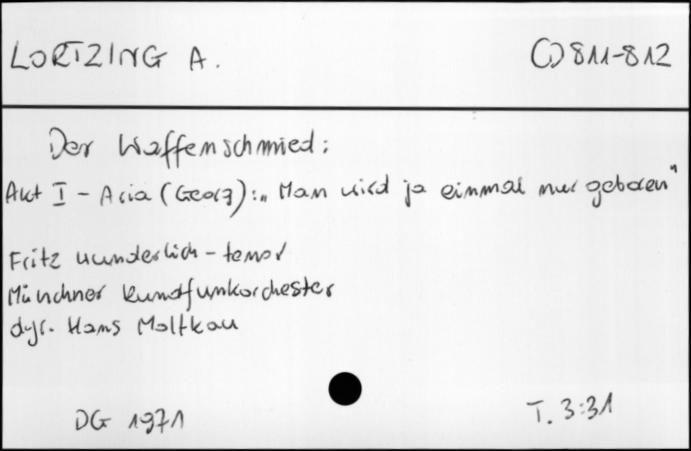 LORTZING A. CD 811-812
Der Waffenschmied:
Akt I - Aria (Georg): „Man wird ja einmal nur geboren"
Fritz Wunderlich - tenor
Münchner Rundfunkorchester
dyr. Hans Moltkau
DG 1971 T. 3:31